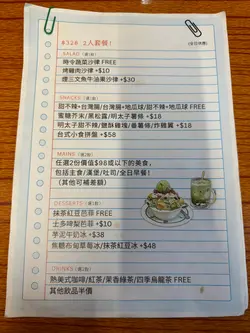 $328 2人套餐!
SALAD (選1款)
時令蔬菜沙律 FREE
烤雞肉沙律 +$10
煙三文魚牛油果沙律 +$30
SNACKS (選1款)
甜不辣/台灣腸/台灣腸+地瓜球/甜不辣+地瓜球 FREE
蜜糖芥末/黑松露/明太子薯條 +$18
明太子甜不辣/鹽酥雞塊/番薯條/炸雞翼 +$18
台式小食拼盤 +$58
MAINS (選2款)
任選2份價值$98或以下的美食,
包括主食/漢堡/吐司/全日早餐!
(其他可補差額)
DESSERTS (選1款)
抹茶紅豆芭菲 FREE
士多啤梨芭菲 +$10
芋泥牛奶冰 +$38
焦糖布甸草莓冰/抹茶紅豆冰 +$48
DRINKS
熱美式咖啡/紅茶/茉香綠茶/四季烏龍茶 FREE
其他飲品半價